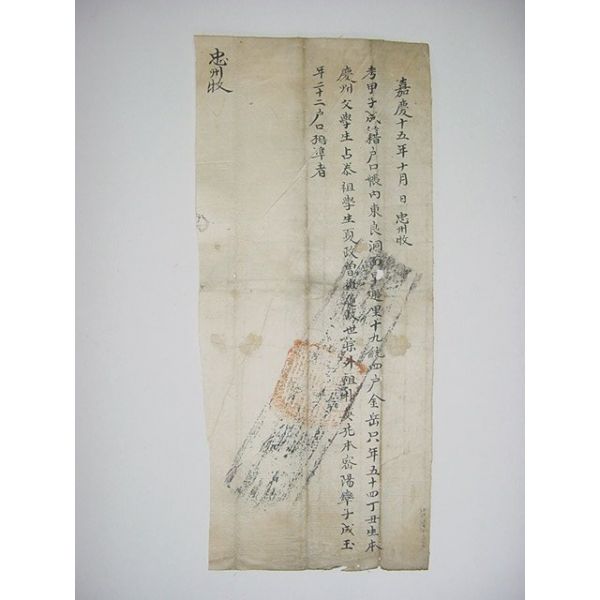 嘉慶十五年十月 日 忠州牧
考甲子成籍户口帳内東良洞面早遊里十九統四户金岳只年五十四丁丑生本
慶州父學生占泰祖學生夏政曾 世宗外祖 本密陽率子成玉
年二十二户口相準者
忠州牧